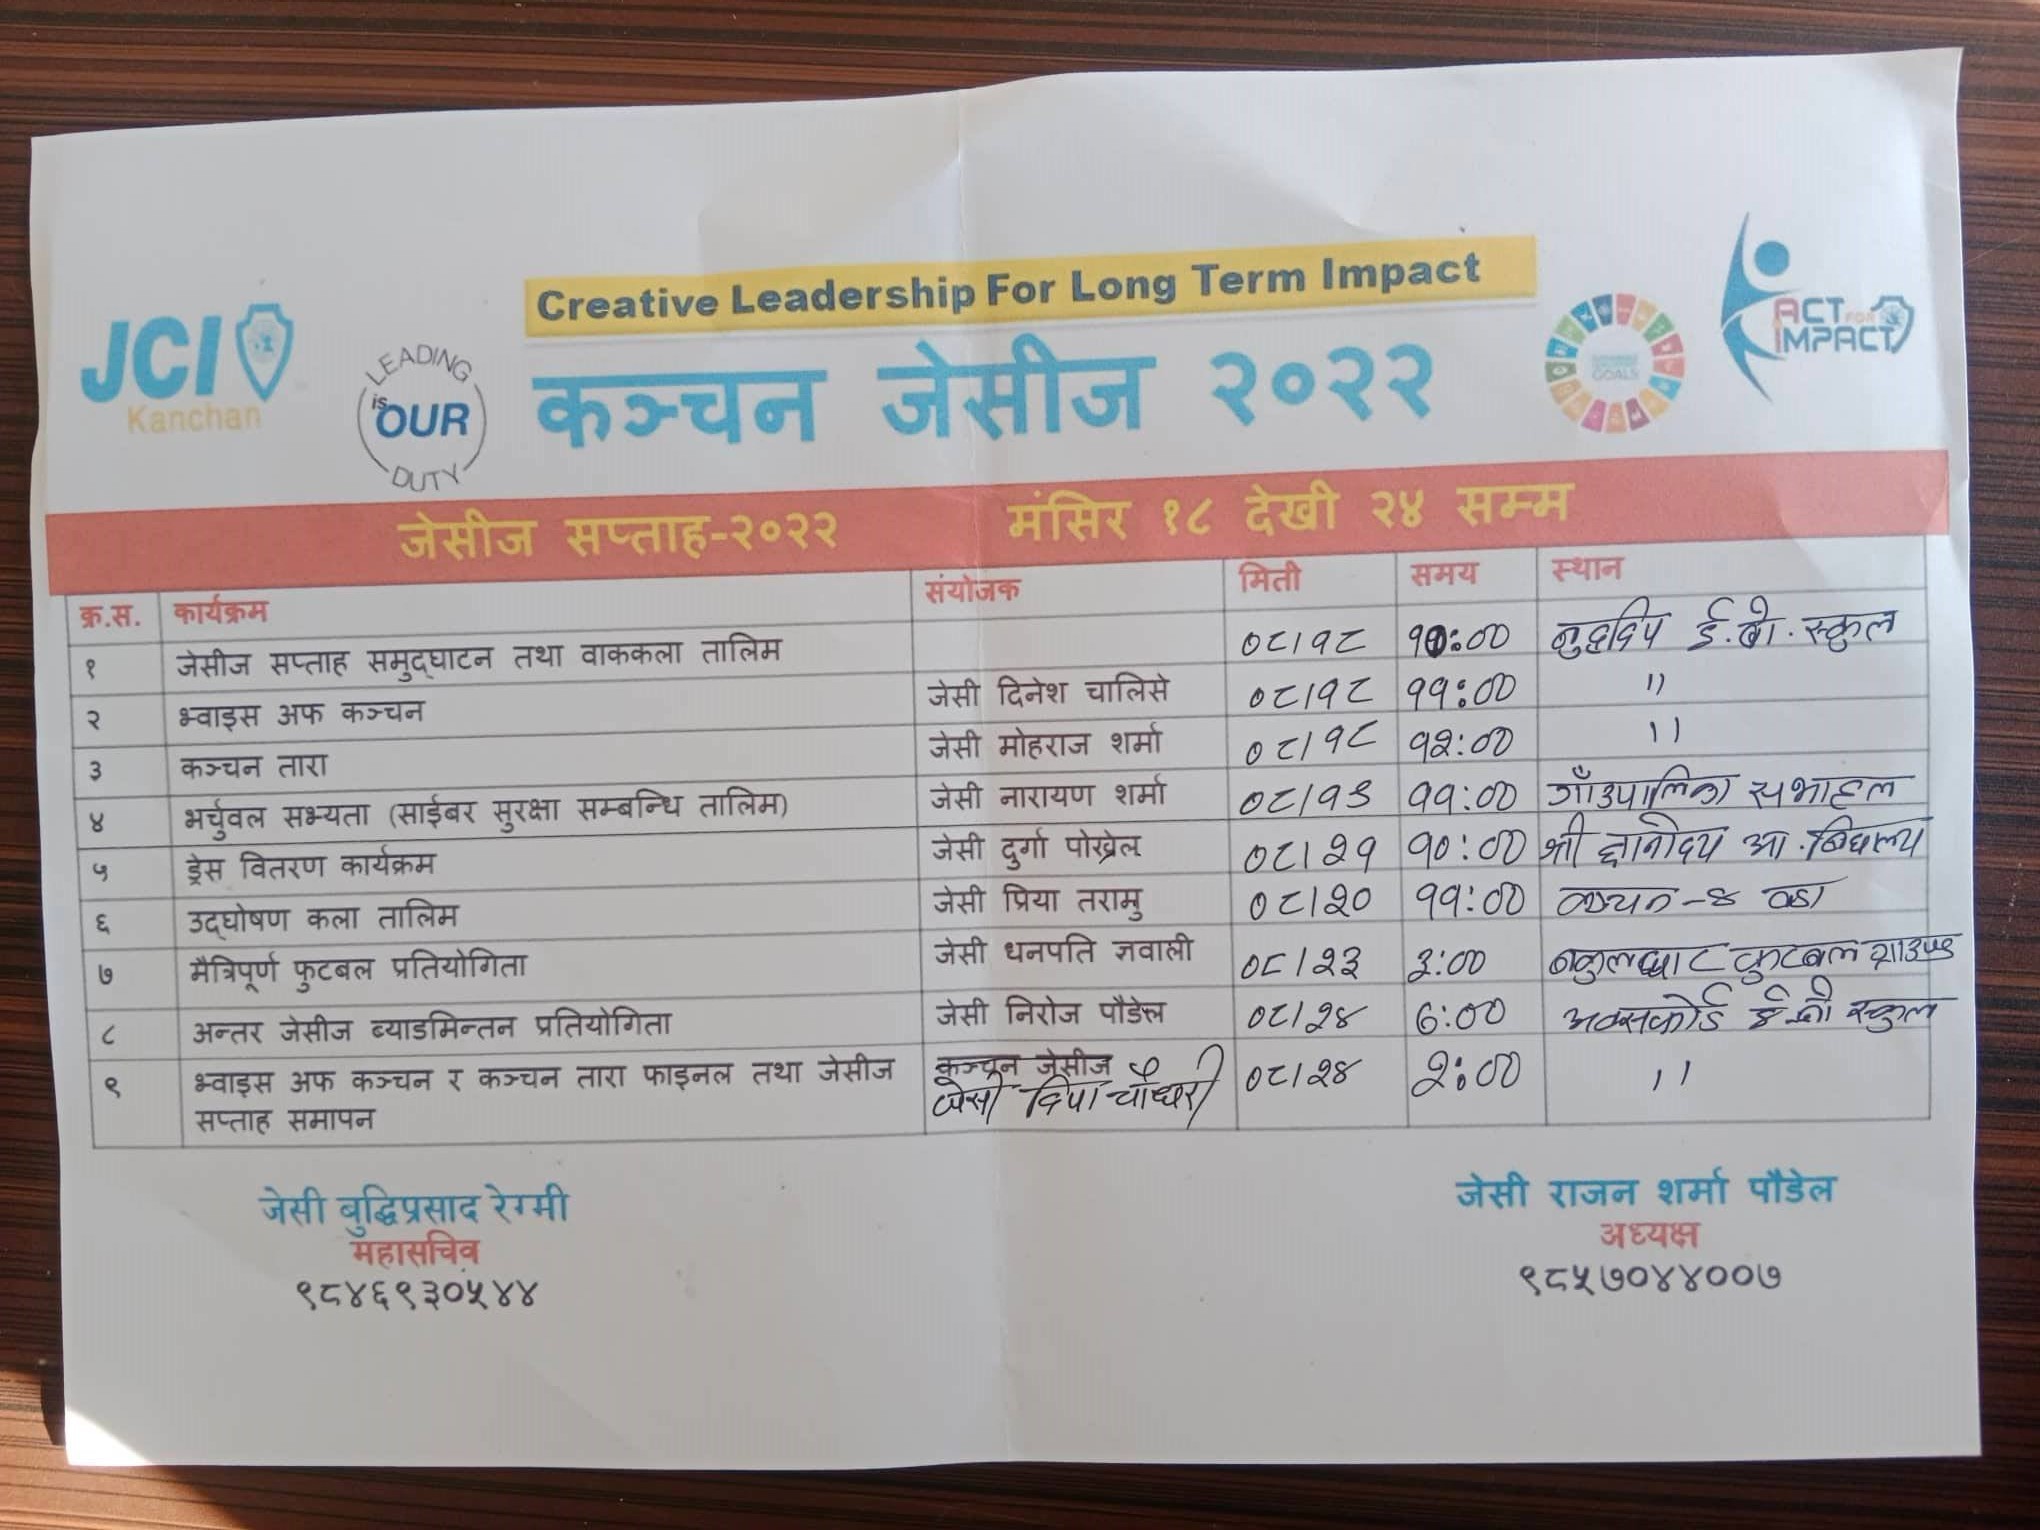 Creative Leadership For Long Term Impact
JCI
Kanchan
LEADING
is OUR
DUTY
कञ्चन जेसीज २०२२
GOALS
ACT FOR
IMPACT
जेसीज सप्ताह-२०२२ मंसिर १८ देखी २४ सम्म
क्र.स. कार्यक्रम संयोजक मिती समय स्थान
१ जेसीज सप्ताह समुद्घाटन तथा वाककला तालिम ०८।१८ १०:०० बुद्धदिप ई.बो. स्कुल
२ भ्वाइस अफ कञ्चन जेसी दिनेश चालिसे ०८।१८ ११:०० ''
३ कञ्चन तारा जेसी मोहराज शर्मा ०८।१८ १२:०० ''
४ भर्चुवल सभ्यता (साईबर सुरक्षा सम्बन्धि तालिम) जेसी नारायण शर्मा ०८।१९ ११:०० गाँउपालिका सभाहल
५ ड्रेस वितरण कार्यक्रम जेसी दुर्गा पोख्रेल ०८।२१ १०:०० श्री ज्ञानोदय आ. विद्यालय
६ उद्घोषण कला तालिम जेसी प्रिया तरामु ०८।२० ११:०० कञ्चन-४ वडा
७ मैत्रिपूर्ण फुटबल प्रतियोगिता जेसी धनपति ज्ञवाली ०८।२३ ३:०० फुटबल ग्राउण्ड
८ अन्तर जेसीज ब्याडमिन्तन प्रतियोगिता जेसी निरोज पौडेल ०८।२४ 6:०० अक्सफोर्ड ई.बो स्कुल
९ भ्वाइस अफ कञ्चन र कञ्चन तारा फाइनल तथा जेसीज कञ्चन जेसीज ०८।२४ २:०० ''
सप्ताह समापन जेसी दिपा चौधरी
जेसी बुद्धिप्रसाद रेग्मी
महासचिव
९८४६९३०५४४
जेसी राजन शर्मा पौडेल
अध्यक्ष
९८५७०४४००७